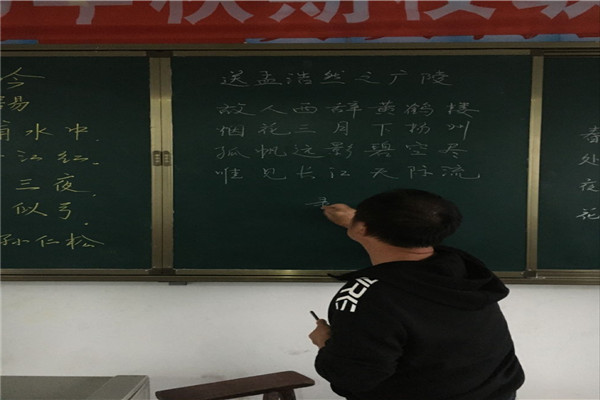 秋期校
今
易
水中.
江红.
三夜.
似弓.
孙仁松
送孟浩然之广陵
故人西辞黄鹤楼
烟花三月下扬州
孤帆远影碧空尽
唯见长江天际流
春
处
夜
花